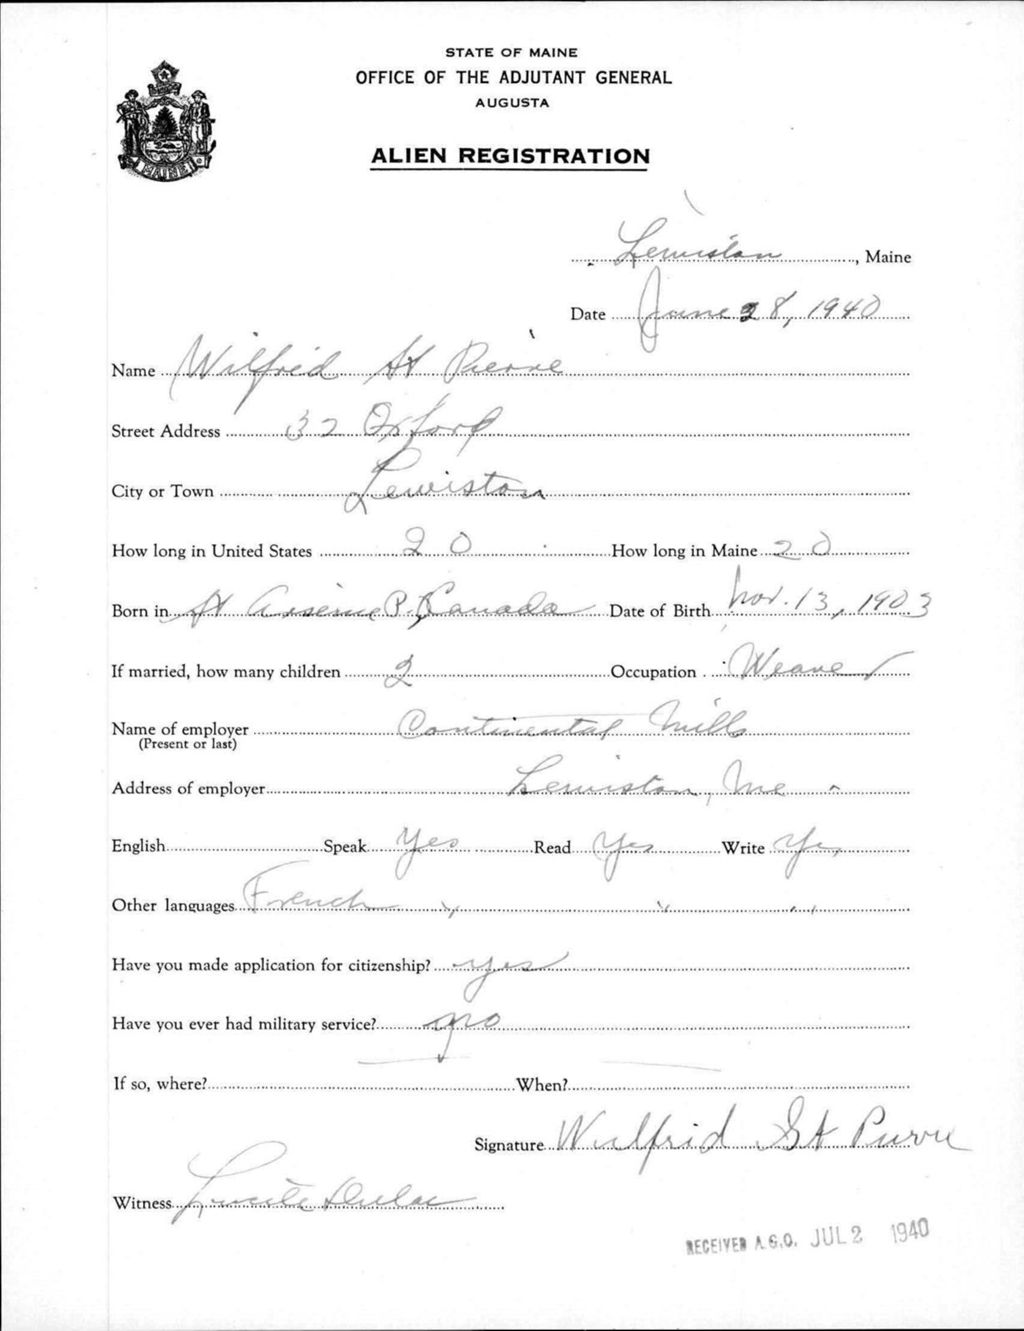 STATE OF MAINE
OFFICE OF THE ADJUTANT GENERAL
AUGUSTA
MAINE
ALIEN REGISTRATION
Lewiston, Maine
Date June 28, 1940
Name Wilfrid St Pierre
Street Address 32 Oxford
City or Town Lewiston
How long in United States 20 How long in Maine 20
Born in St Arsène P.Q Canada Date of Birth Nov. 13, 1903
If married, how many children 2 Occupation Weaver
Name of employer Continental Mills
(Present or last)
Address of employer Lewiston, Me
English Speak Yes Read Yes Write Yes
Other languages French " " "
Have you made application for citizenship? yes
Have you ever had military service? no
If so, where? When?
Signature Wilfrid St Pierre
Witness Lucile Dulac
RECEIVED A.G.O. JUL 2 1940